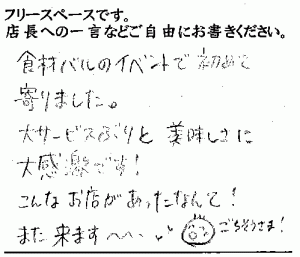 フリースペースです。
店長への一言などご自由にお書きください。
食材バルのイベントで初めて
寄りました。
大サービスぶりと美味しさに
大感激です!
こんなお店があったなんて!
また来ます〜〜
ごちそうさま!